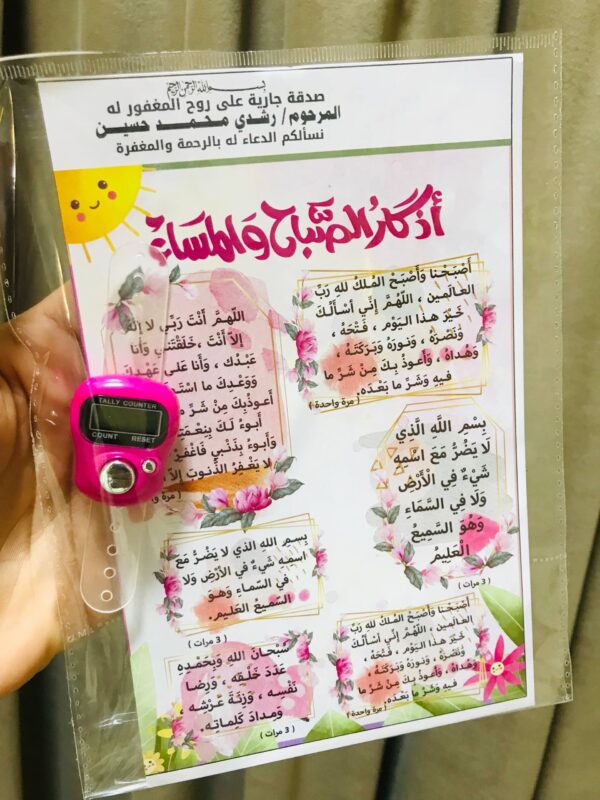 بسم الله الرحمن الرحيم
صدقة جارية على روح المغفور له
المرحوم/ رشدي محمد حسين
نسألكم الدعاء له بالرحمة والمغفرة
أذكار الصباح والمساء
أَصْبَحْنا وَأَصْبَحَ المُلكُ للهِ رَبِّ
العالَمين ، اللّهُمَّ إِنِّي أسْأَلُكَ
خَيْرَ هذا اليَوْم ، فَتْحَهُ ،
وَنَصْرَهُ ، وَنورَهُ وَبَرَكَتَهُ ،
وَهُداهُ ، وَأَعوذُ بِكَ مِنْ شَرِّ ما
فيهِ وَشَرِّ ما بَعْدَه.
( مرة واحدة )
اللّهُمَّ أَنْتَ رَبِّي لا إلهَ
إلاّ أَنْتَ ، خَلَقْتَني وَأَنا
عَبْدُك ، وَأَنا عَلى عَهْدِكَ
وَوَعْدِكَ ما اسْتَـ
أَعوذُ بِكَ مِنْ شَرِّ
أَبوءُ لَكَ بِنِعْمَتِـ
وَأَبوءُ بِذَنْبي فَاغْفِرْ
لا يَغْفِرُ الذُّنوبَ إلاّ
( مرة و
بِسْمِ اللَّهِ الَّذِي
لَا يَضُرُّ مَعَ اسْمِهِ
شَيْءٌ فِي الْأَرْضِ
وَلَا فِي السَّمَاءِ
وَهُوَ السَّمِيعُ
الْعَلِيمُ
( 3 مرات )
بِسمِ اللهِ الذي لا يَضُرُّ مَعَ
اسمِهِ شَيءٌ في الأرْضِ وَلا
في السّماءِ وَهوَ
السّميعُ العَليم.
( 3 مرات )
أَصْبَحْنا وَأَصْبَحَ المُلكُ للهِ رَبِّ
العالَمين ، اللّهُمَّ إِنِّي أسْأَلُكَ
خَيْرَ هذا اليَوْم ، فَتْحَهُ ،
وَنَصْرَهُ ، وَنورَهُ وَبَرَكَتَهُ ،
وَهُداهُ ، وَأَعوذُ بِكَ مِنْ شَرِّ ما
فيهِ وَشَرِّ ما بَعْدَه.
( مرة واحدة )
سُبْحانَ اللهِ وَبِحَمْدِهِ
عَدَدَ خَلْقِه ، وَرِضا
نَفْسِه ، وَزِنَةَ عَرْشِه ،
وَمِدادَ كَلِماتِه.
( 3 مرات )
TALLY COUNTER
COUNT RESET